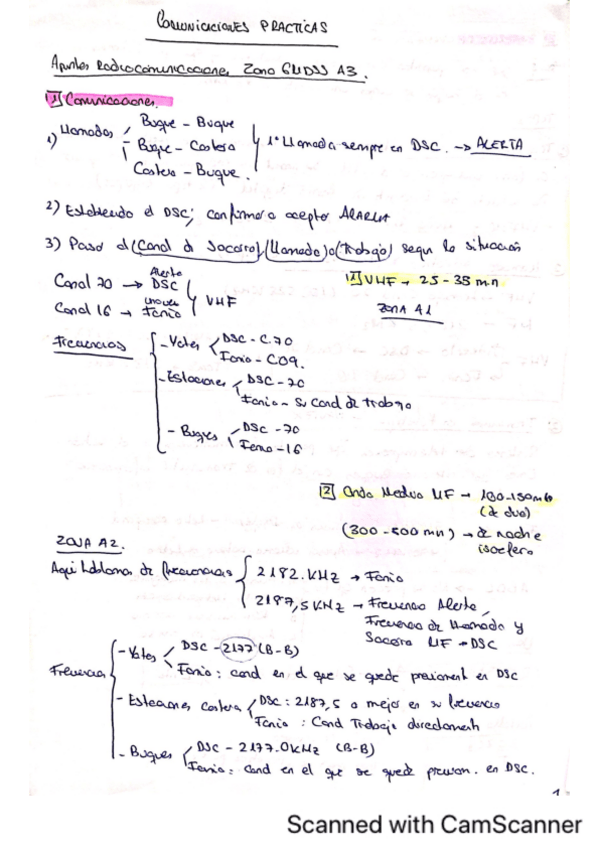 COMUNICACIONES PRACTICAS
Apuntes Radiocomunicaciones Zona GMDSS A3.
1) Comunicaciones.
1) Llamadas
Buque - Buque
Buque - Costera
Costera - Buque.
1ª Llamada siempre en DSC. -> ALERTA
2) Establecido el DSC; confirmar o aceptar ALARMA
3) Paso al (Canal de Socorro)/(Llamada)o(Trabajo) segun la situacion
Canal 70 -> Alerta DSC
Canal 16 -> Fonia
VHF
1) VHF -> 25-35 mn
ZONA A1
Frecuencias
- Yates
DSC - C.70
Fonia - C09.
- Estaciones
DSC - 70
Fonia - Su Canal de trabajo
- Buques
DSC - 70
Fonia - 16
2) Onda Media MF -> 100-150 mn
(de dia)
(300 - 500 mn) -> de noche
ZONA A2.
Aqui hablamos de frecuencias
2182. KHz -> Fonia
2187,5 KHz -> Frecuencia Alerta,
Frecuencia de Llamada y
Socorro MF -> DSC
Frecuencias
- Yates
DSC - 2177 (B-B)
Fonia: canal en el que se quede previament en DSC
- Estaciones Costera
DSC: 2187,5 o mejor en su frecuencia
Fonia : Canal Trabajo directament
- Buques
DSC - 2177.0KHz (B-B)
Fonia: canal en el que se quede previam. en DSC.
1
Scanned with CamScanner